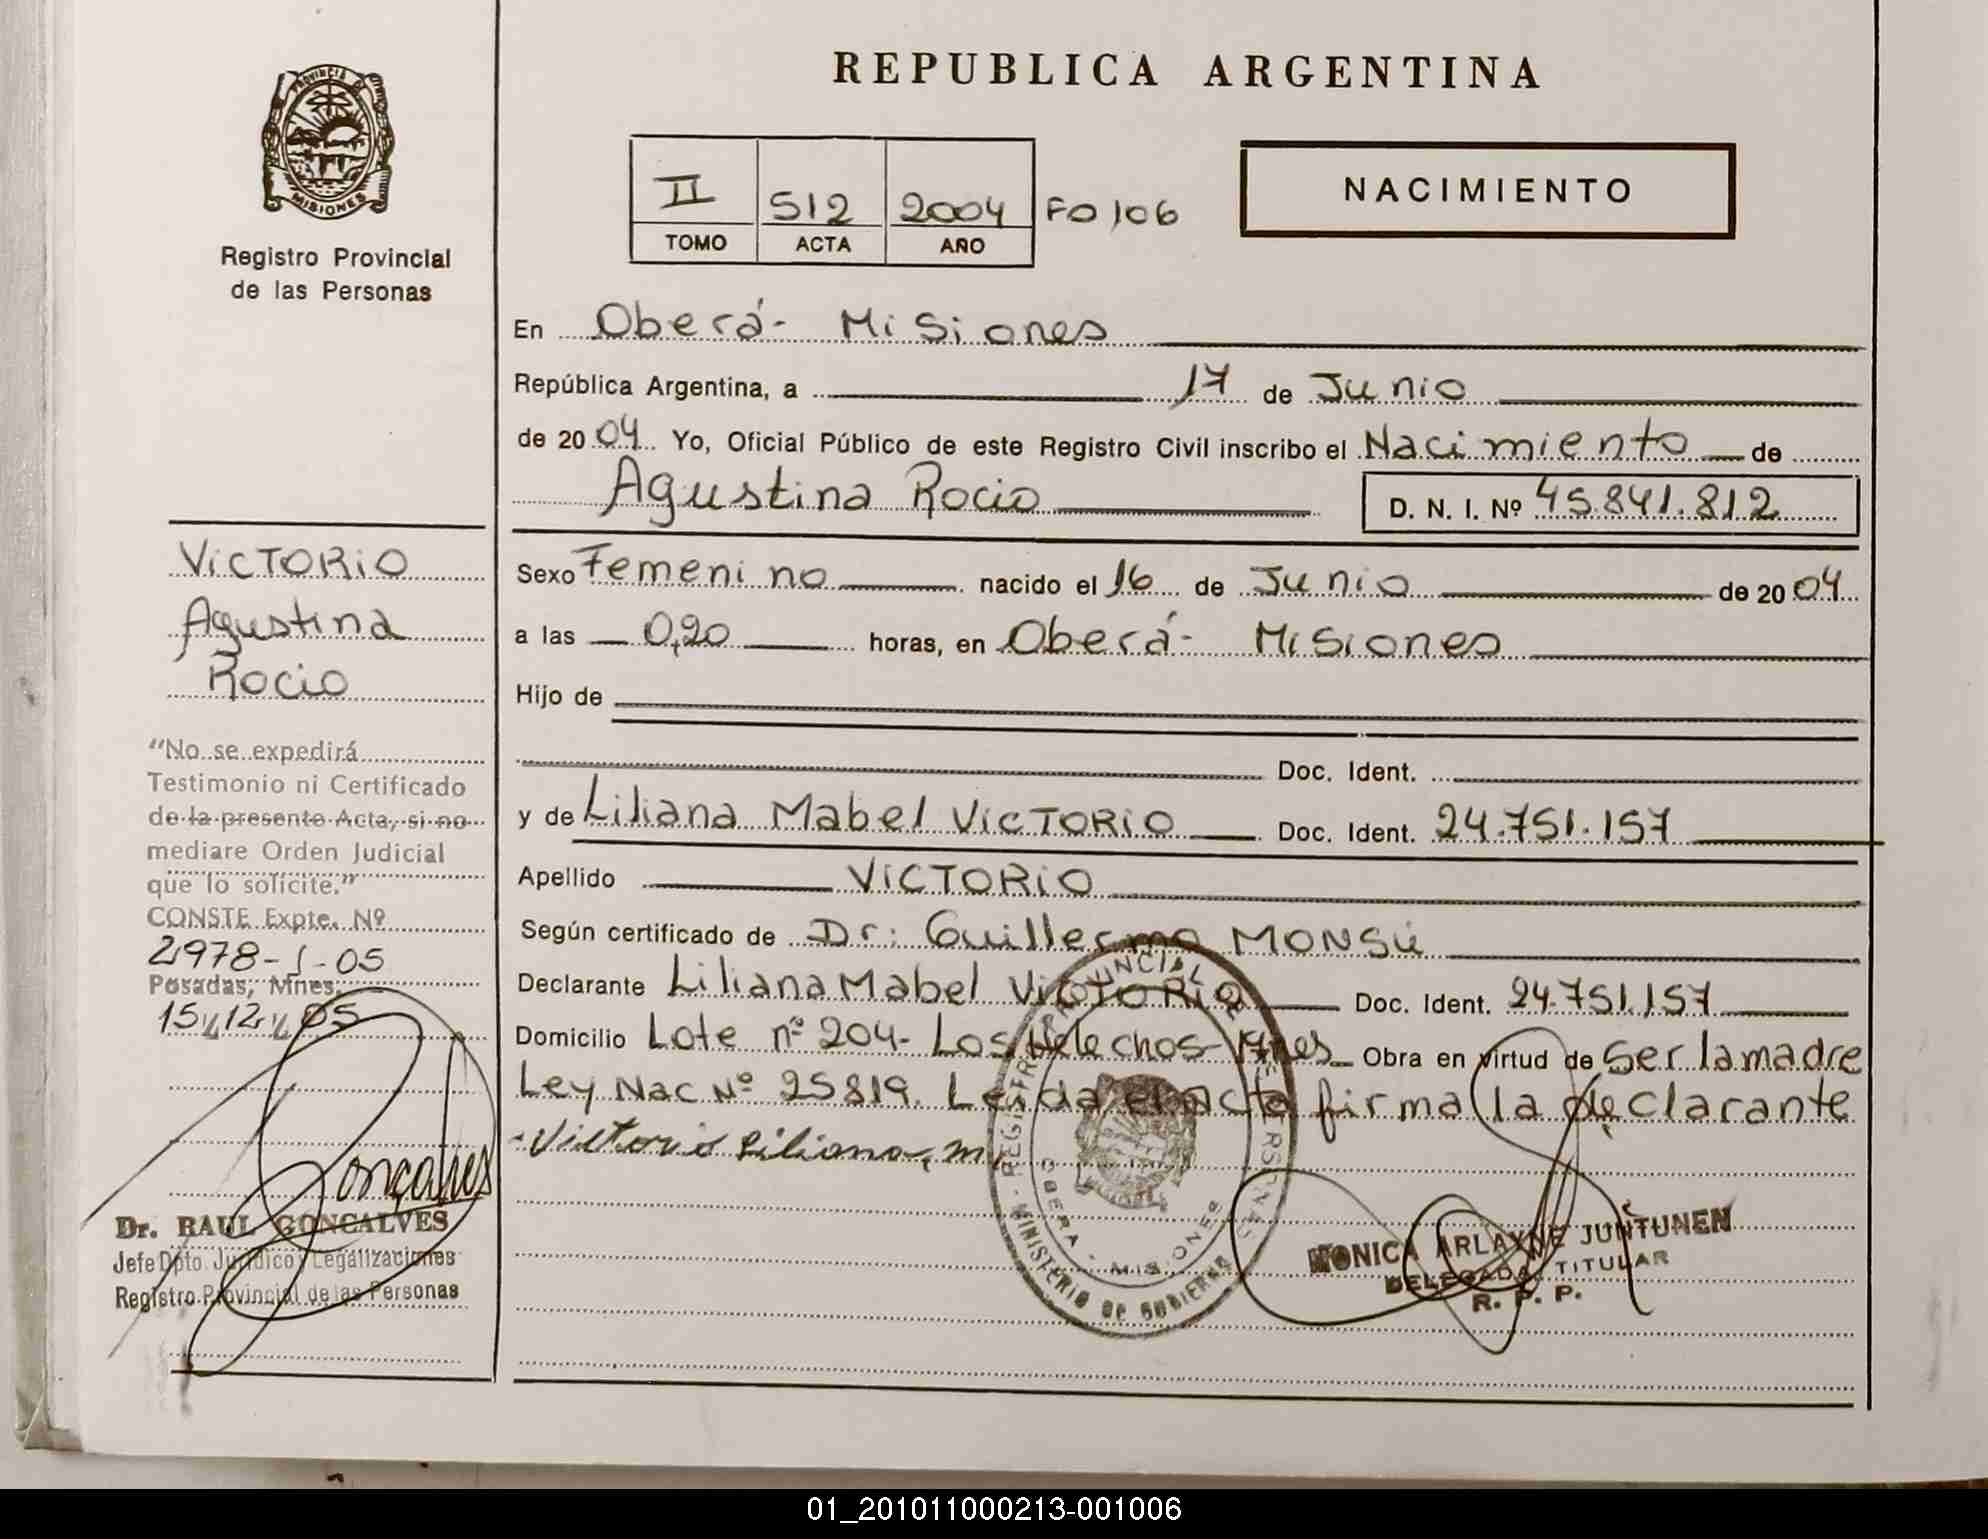 REPUBLICA ARGENTINA
PROVINCIA DE MISIONES
Registro Provincial
de las Personas
II 512 2004 Fº 106
TOMO ACTA AÑO
NACIMIENTO
En Oberá- Misiones
República Argentina, a 17 de Junio
de 2004 Yo, Oficial Público de este Registro Civil inscribo el Nacimiento de
Agustina Rocio D. N. I. Nº 45.841.812
Sexo Femenino nacido el 16 de Junio de 2004
a las 0,20 horas, en Oberá- Misiones
Hijo de
Doc. Ident.
y de Liliana Mabel VICTORIO Doc. Ident. 24.751.157
Apellido VICTORIO
Según certificado de Dr: Guillermo MONSÚ
Declarante Liliana Mabel VICTORIO Doc. Ident. 24.751.157
Domicilio Lote nº 204- Los Helechos- Mnes Obra en virtud de Ser la madre
Ley Nac Nº 25819. Leida el Acta firma la declarante
Victorio Liliana, m
REGISTRO PROVINCIAL DE LAS PERSONAS
MINISTERIO DE GOBIERNO
OBERA - MISIONES
MONICA ARLAYNE JUNTUNEN
DELEGADA TITULAR
R. P. P.
VICTORIO
Agustina
Rocio
"No se expedirá
Testimonio ni Certificado
de la presente Acta, si no
mediare Orden Judicial
que lo solicite."
CONSTE Expte. Nº
2978-J-05
Posadas, Mnes.
15/12/05
Goncalves
Dr. RAUL GONCALVES
Jefe Dpto. Jurídico y Legalizaciones
Registro Provincial de las Personas
01_201011000213-001006